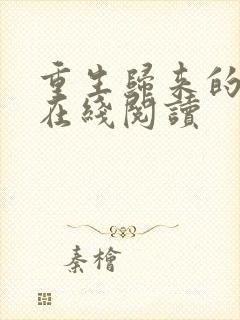 重生歸來的
在綫閱讀
秦檜